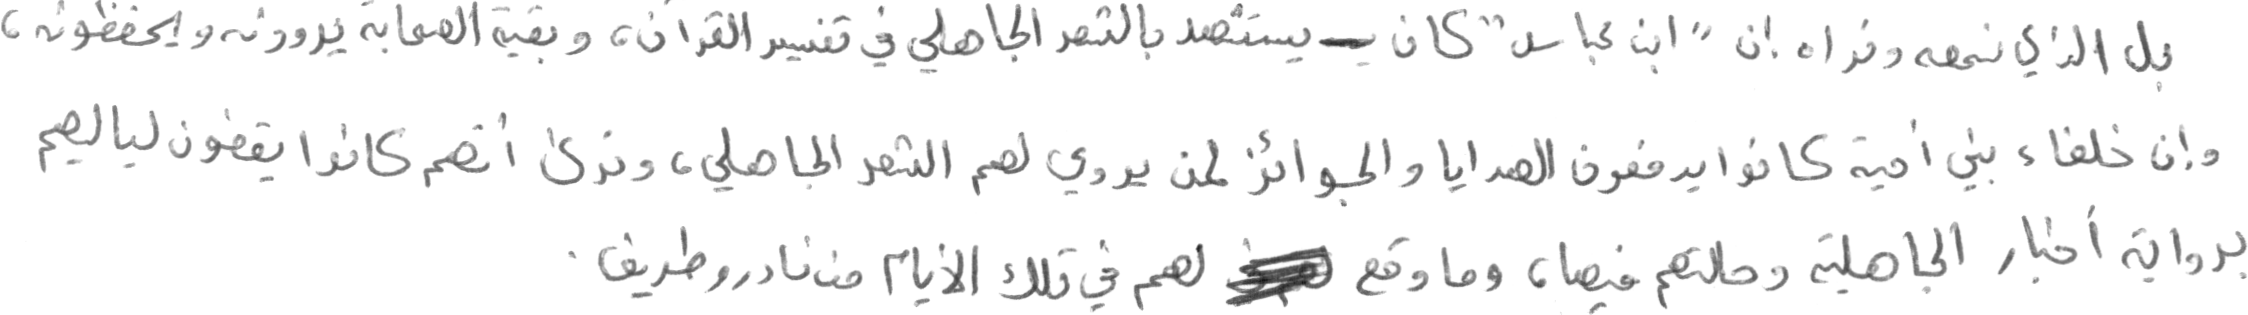 بل الذي نسمعه ونراه إن "ابن عباس" كان يستشهد بالشعر الجاهلي في تفسير القرآن، وبقية الصحابة يروونه ويحفظونه،
وإن خلفاء بني أمية كانوا يدفعون الهدايا والجوائز لمن يروي لهم الشعر الجاهلي، ونرى أنهم كانوا يقضون لياليهم
برواية أخبار الجاهلية وحالتهم فيها، وما وقع لهم في تلك الأيام من نادر وطريف.